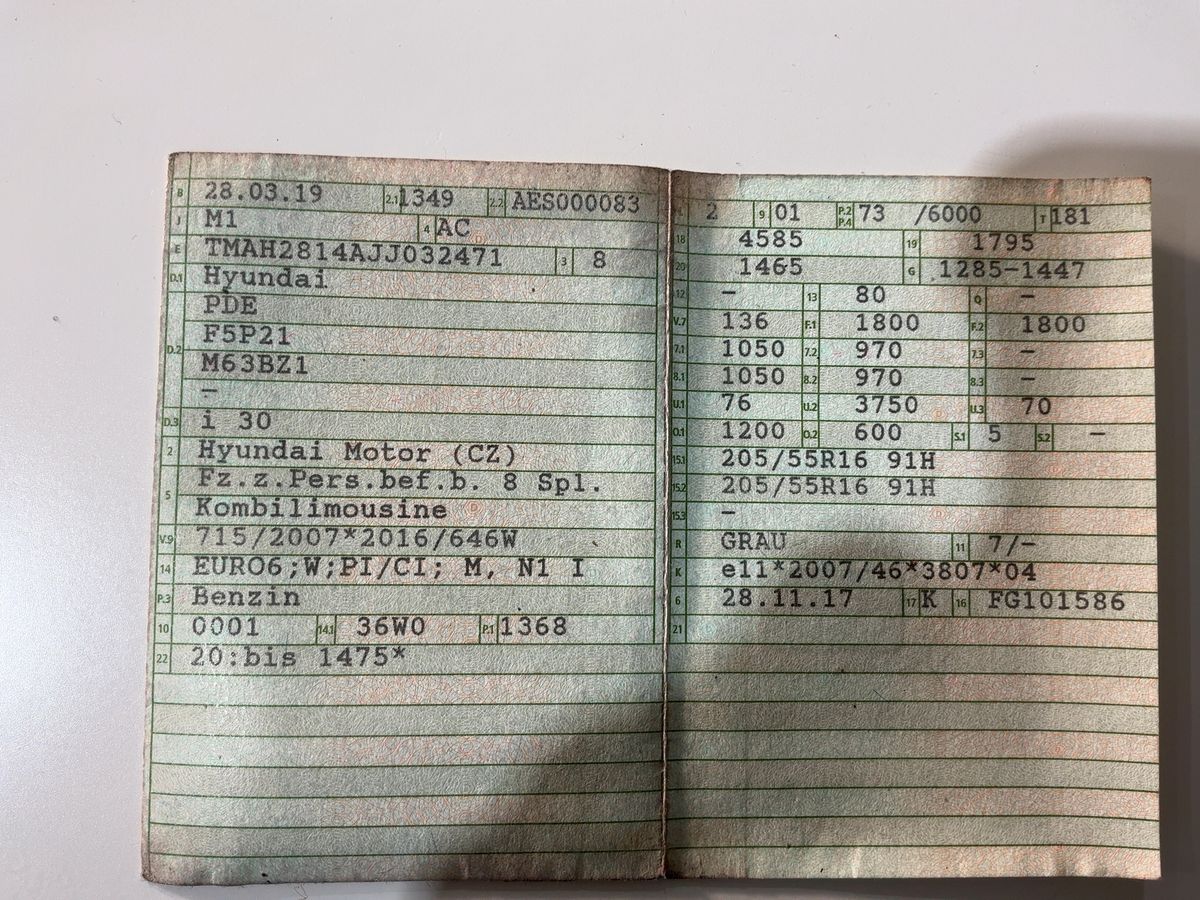 B 28.03.19 2.1 1349 2.2 AES000083
J M1 4 AC
E TMAH2814AJJ032471 3 8
D.1 Hyundai
PDE
D.2 F5P21
M63BZ1
–
D.3 i 30
2 Hyundai Motor (CZ)
5 Fz.z.Pers.bef.b. 8 Spl.
Kombilimousine
V.9 715/2007*2016/646W
14 EURO6;W;PI/CI; M, N1 I
P.3 Benzin
10 0001 14.1 36W0 P.1 1368
22 20:bis 1475*
2 9 01 P.2 P.4 73 /6000 T 181
18 4585 19 1795
20 1465 G 1285-1447
12 – 13 80 Q –
V.7 136 F.1 1800 F.2 1800
7.1 1050 7.2 970 7.3 –
8.1 1050 8.2 970 8.3 –
U.1 76 U.2 3750 U.3 70
O.1 1200 O.2 600 S.1 5 S.2 –
15.1 205/55R16 91H
15.2 205/55R16 91H
15.3 –
R GRAU 11 7/–
K e11*2007/46*3807*04
6 28.11.17 17 K 16 FG101586
21